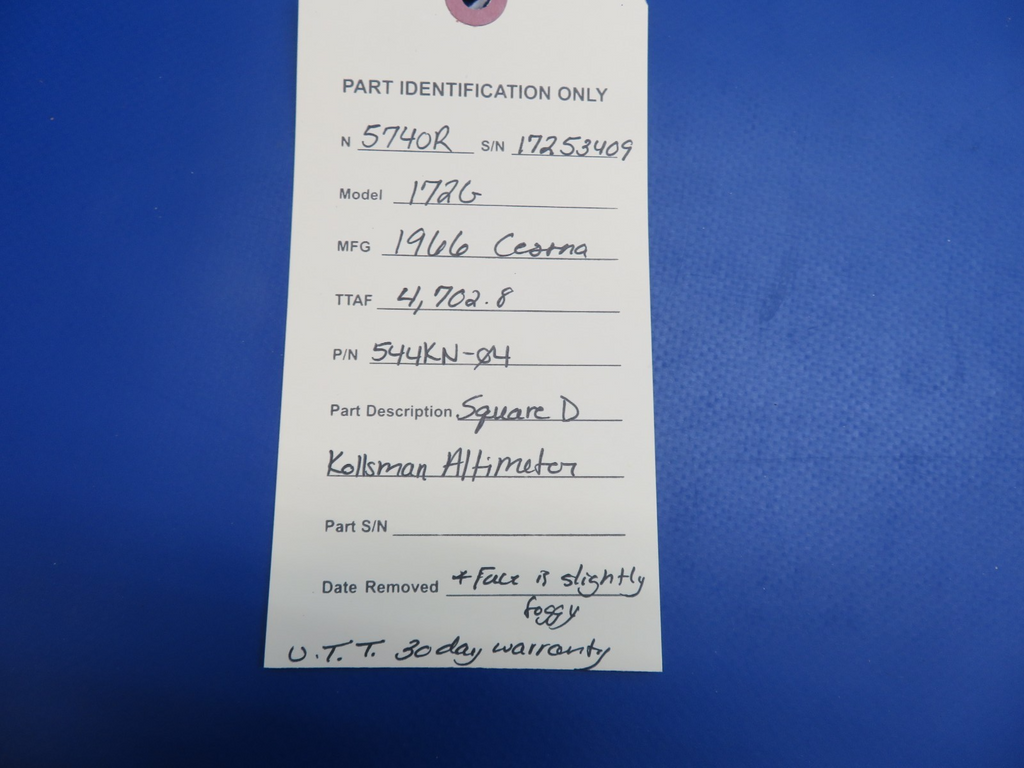 PART IDENTIFICATION ONLY
N 5740R S/N 17253409
Model 172G
MFG 1966 Cessna
TTAF 4,702.8
P/N 544KN-Ø4
Part Description Square D
Kollsman Altimeter
Part S/N
Date Removed *Face is slightly
foggy
U.T.T. 30 day warranty